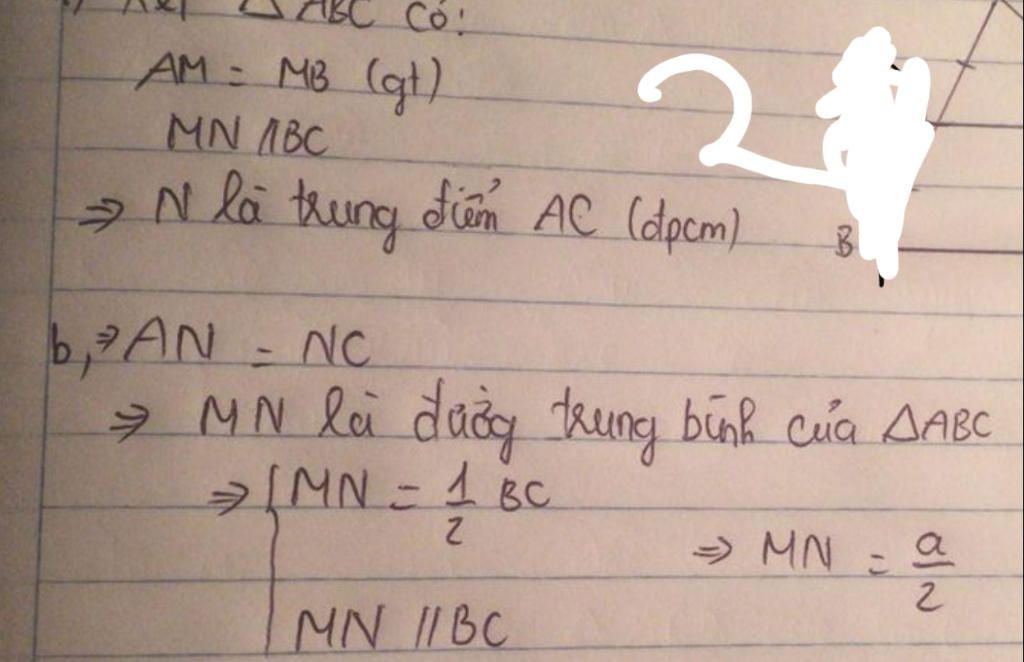 △ABC có:
AM = MB (gt)
MN // BC
⇒ N là trung điểm AC (đpcm)
2
B
b, ⇒ AN = NC
⇒ MN là đường trung bình của △ABC
⇒ { MN = 1/2 BC
⇒ MN = a/2
MN // BC